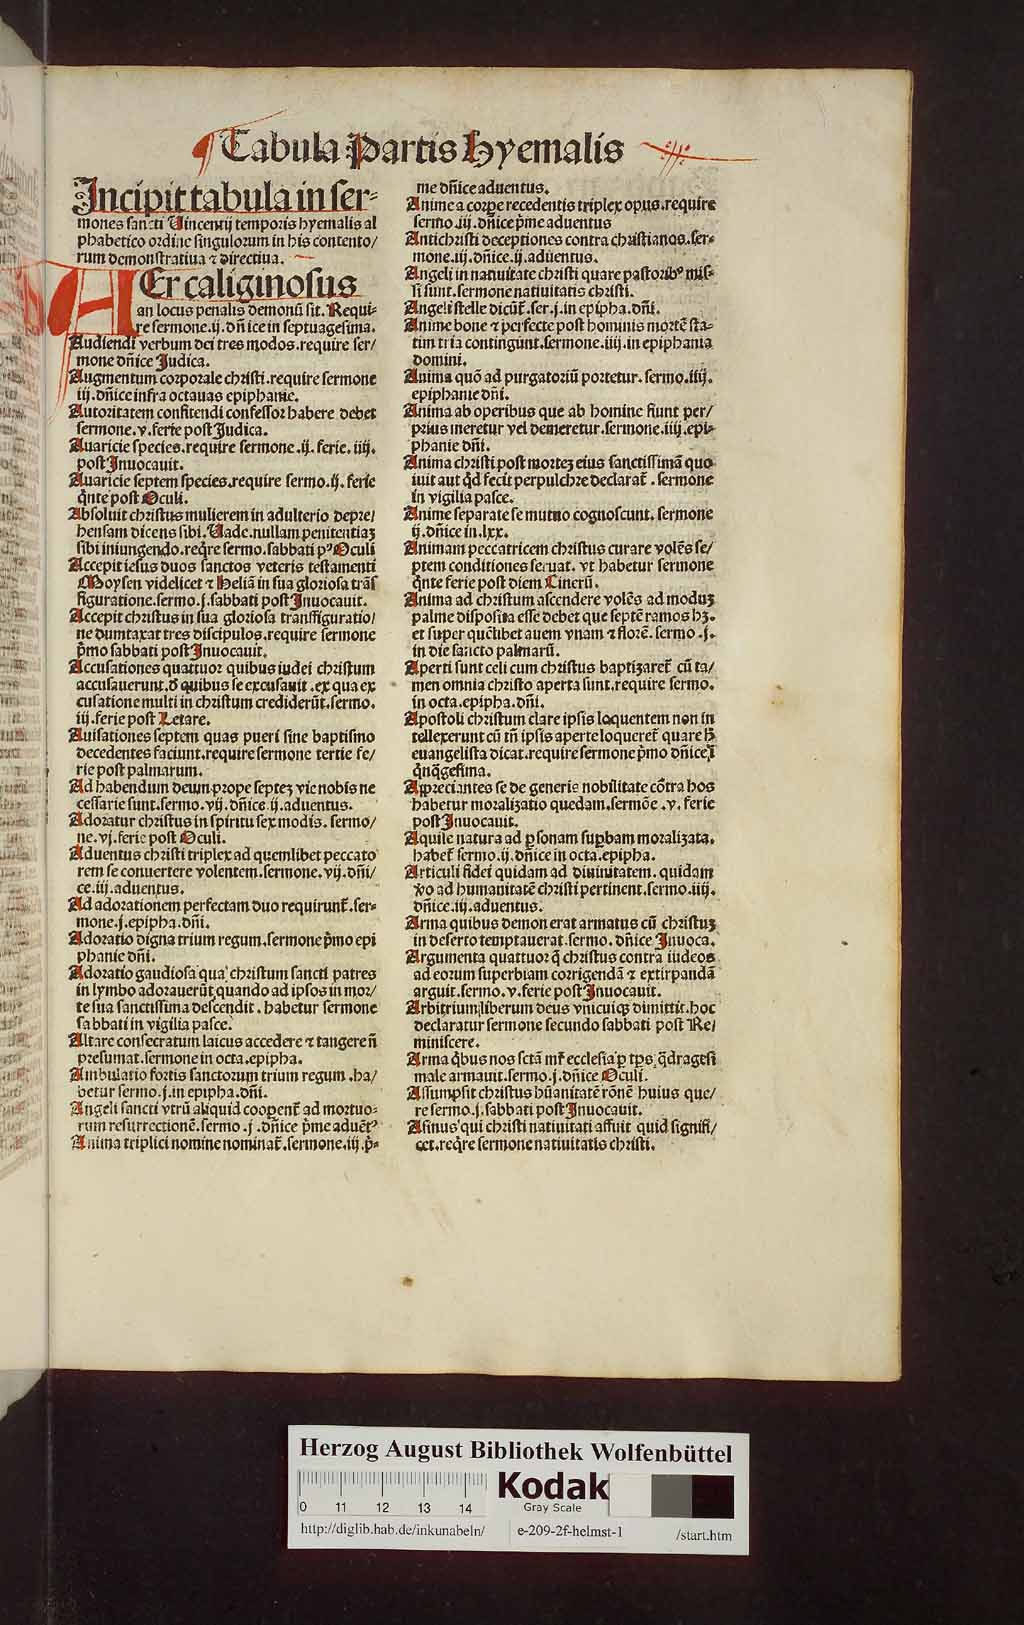 ¶ Tabula Partis Hyemalis
Incipit tabula in ser-
mones sancti Uincentij temporis hyemalis al
phabetico ordine singulorum in his contento/
rum demonstratiua ⁊ directiua.
AEr caliginosus
an locus penalis demonū sit. Requi-
re sermone.ij.dn̄ice in septuagesima.
Audiendi verbum dei tres modos.require ser/
mone dn̄ice Judica.
Augmentum corporale christi.require sermone
iij.dn̄ice infra octauas epiphanie.
Autoritatem confitendi confessor habere debet
sermone.v.ferie post Judica.
Auaricie species.require sermone.ij.ferie.iiij.
post Inuocauit.
Auaricie septem species.require sermo.ij.ferie
q̄nte post Oculi.
Absoluit christus mulierem in adulterio depre/
hensam dicens sibi.Uade.nullam penitentiaꝫ
sibi iniungendo.req̄re sermo.sabbati pꝰ Oculi
Accepit iesus duos sanctos veteris testamenti
Moysen videlicet ⁊ Heliā in sua gloriosa trāſ
figuratione.sermo.j.sabbati post Inuocauit.
Accepit christus in sua gloriosa transfiguratio/
ne dumtaxat tres discipulos.require sermone
p̄mo sabbati post Inuocauit.
Accusationes quattuor quibus iudei christum
accusauerunt.d̄ quibus se excusauit.ex qua ex
cusatione multi in christum crediderūt.sermo.
iij.ferie post Letare.
Auisationes septem quas pueri sine baptismo
decedentes faciunt.require sermone tertie fe/
rie post palmarum.
Ad habendum deum prope septeꝫ vie nobis ne
cessarie sunt.sermo.vij.dn̄ice.ij.aduentus.
Adoratur christus in spiritu sex modis.sermo/
ne.vj.ferie post Oculi.
Aduentus christi triplex ad quemlibet peccato
rem se conuertere volentem.sermone.vij.dn̄i/
ce.iij.aduentus.
Ad adorationem perfectam duo requirunt̄.ser-
mone.j.epipha.dn̄i.
Adoratio digna trium regum.sermone p̄mo epi
phanie dn̄i.
Adoratio gaudiosa qua christum sancti patres
in lymbo adorauerūt quando ad ipsos in mor/
te sua sanctissima descendit.habetur sermone
sabbati in vigilia pasce.
Altare consecratum laicus accedere ⁊ tangere n̄
presumat.sermone in octa.epipha.
Ambulatio fortis sanctorum trium regum.ha/
betur sermo.j.in epipha.dn̄i.
Angeli sancti vtrū aliquid cooperent̄ ad mortuo-
rum resurrectionē.sermo.j.dn̄ice p̄me aduētꝰ
Anima triplici nomine nominat̄.sermone.iij.p̄-
me dn̄ice aduentus.
Anime a corpe recedentis triplex opus.require
sermo.iij.dn̄ice p̄me aduentus
Antichristi deceptiones contra christianos.ser-
mone.iij.dn̄ice.ij.aduentus.
Angeli in natiuitate christi quare pastoribꝰ mis-
si sunt.sermone natiuitatis christi.
Angeli stelle dicūt̄.ser.j.in epipha.dn̄i.
Anime bone ⁊ perfecte post hominis mortē sta-
tim tria contingunt.sermone.iiij.in epiphania
domini.
Anima quō ad purgatoriū portetur.sermo.iiij.
epiphanie dn̄i.
Anima ab operibus que ab homine fiunt per/
prius meretur vel demeretur.sermone.iiij.epi-
phanie dn̄i.
Anima christi post morteꝫ eius sanctissimā quo
iuit aut q̄d fecit perpulchre declarat̄.sermone
in vigilia pasce.
Anime separate se mutuo cognoscunt.sermone
ij.dn̄ice in.lxx.
Animam peccatricem christus curare volēs se/
ptem conditiones seruat.vt habetur sermone
q̄nte ferie post diem Cinerū.
Anima ad christum ascendere volēs ad moduꝫ
palme disposita esse debet que septē ramos hꝫ.
et super quēlibet auem vnam ⁊ florē.sermo.j.
in die sancto palmarū.
Aperti sunt celi cum christus baptizaret̄ cū ta/
men omnia christo aperta sunt.require sermo.
in octa.epipha.dn̄i.
Apostoli christum clare ipsis loquentem non in
tellexerunt cū tn̄ ipsis aperte loqueret̄ quare h̄
euangelista dicat.require sermone p̄mo dn̄ice ī
q̄nq̄gesima.
Appreciantes se de generis nobilitate cōtra hos
habetur moralizatio quedam.sermōe.v.ferie
post Inuocauit.
Aquile natura ad ꝑsonam suꝑbam moralizata.
habet̄ sermo.ij.dn̄ice in octa.epipha.
Articuli fidei quidam ad diuinitatem.quidam
v̄o ad humanitatē christi pertinent.sermo.iiij.
dn̄ice.iij.aduentus.
Arma quibus demon erat armatus cū christuꝫ
in deserto temptauerat.sermo.dn̄ice Inuoca.
Argumenta quattuor q̄ christus contra iudeos
ad eorum superbiam corrigendā ⁊ extirpandā
arguit.sermo.v.ferie post Inuocauit.
Arbitrium liberum deus vnicuiqꝫ dimittit.hoc
declaratur sermone secundo sabbati post Re/
miniscere.
Arma q̄bus nos sctā mr̄ ecclesia ꝑ tꝑs q̄dragesi
male armauit.sermo.j.dn̄ice Oculi.
Assumpsit christus hūanitatē rōnē huius que/
re sermo.j.sabbati post Inuocauit.
Asinus qui christi natiuitati affuit quid signifi/
cet.req̄re sermone natiuitatis christi.
Herzog August Bibliothek Wolfenbüttel
Kodak
Gray Scale
0 11 12 13 14
http://diglib.hab.de/inkunabeln/ e-209-2f-helmst-1 /start.htm